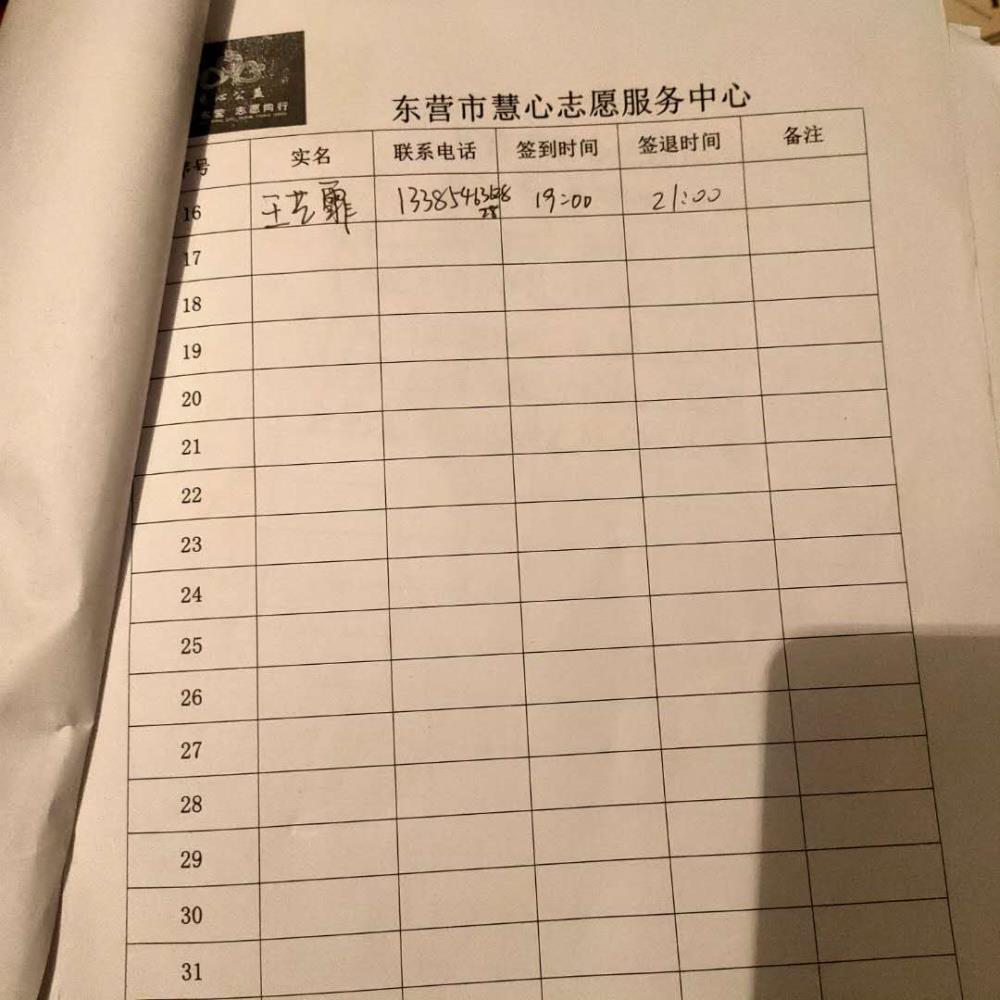 心公益
东营 志愿同行
东营市慧心志愿服务中心
序号 实名 联系电话 签到时间 签退时间 备注
16 王艺霏 19:00 21:00
17
18
19
20
21
22
23
24
25
26
27
28
29
30
31